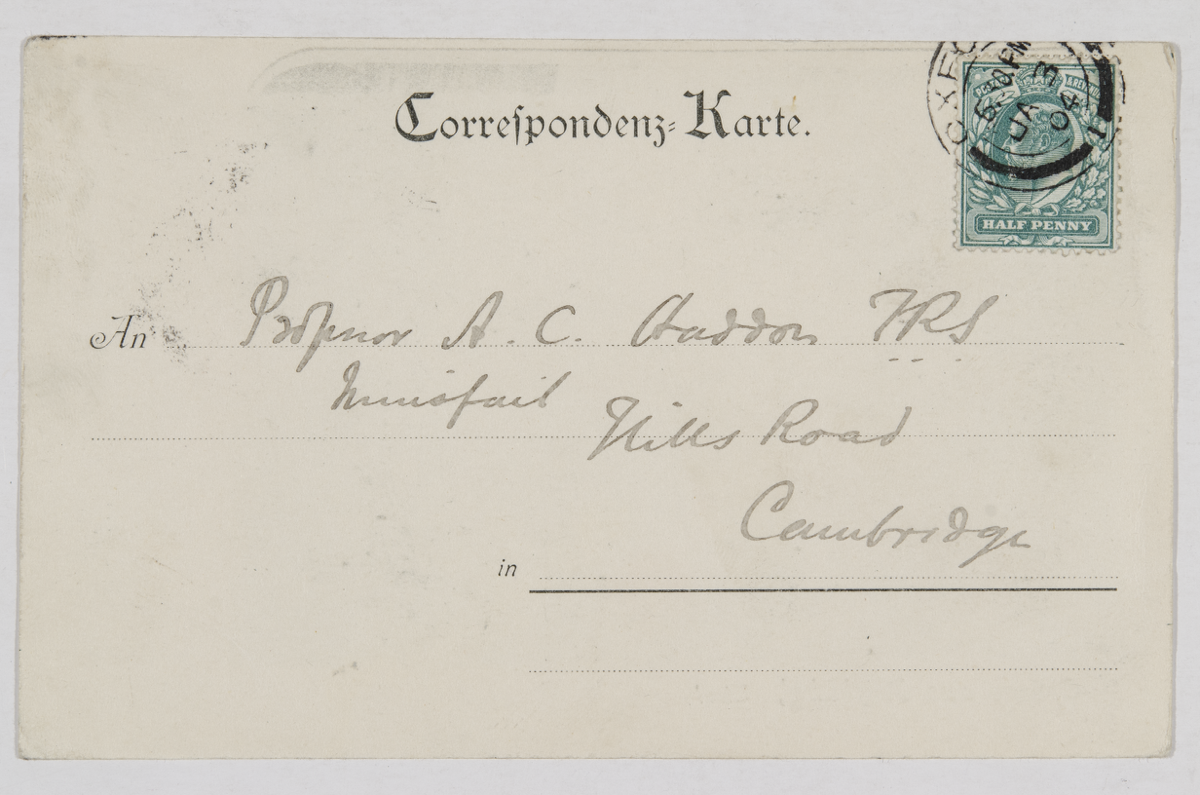 Correſpondenz-Karte.
OXFO
5.30 PM
JA 3
04
1
HALF PENNY
An Professor A. C. Haddon FRS
Innisfail
Hills Road
Cambridge
in